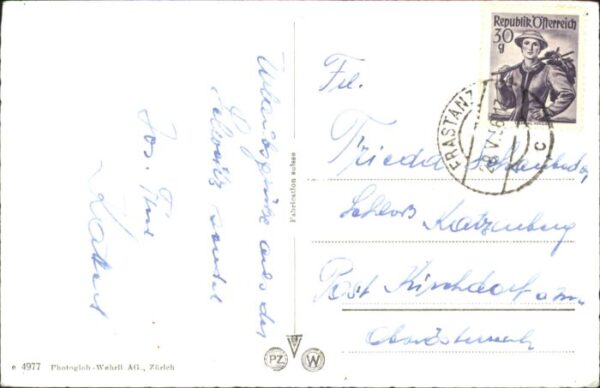 Urlaubsgrüße aus der
Schweiz sendet
Jos. Thur
Republik Österreich
30
g
FRASTANZ
c
Frl.
Friedl
Schloß Katzenberg
Post Kirchdorf a. Inn
Oberösterreich
Fabrication suisse
PZ
W
e 4977 Photoglob-Wehrli AG., Zürich